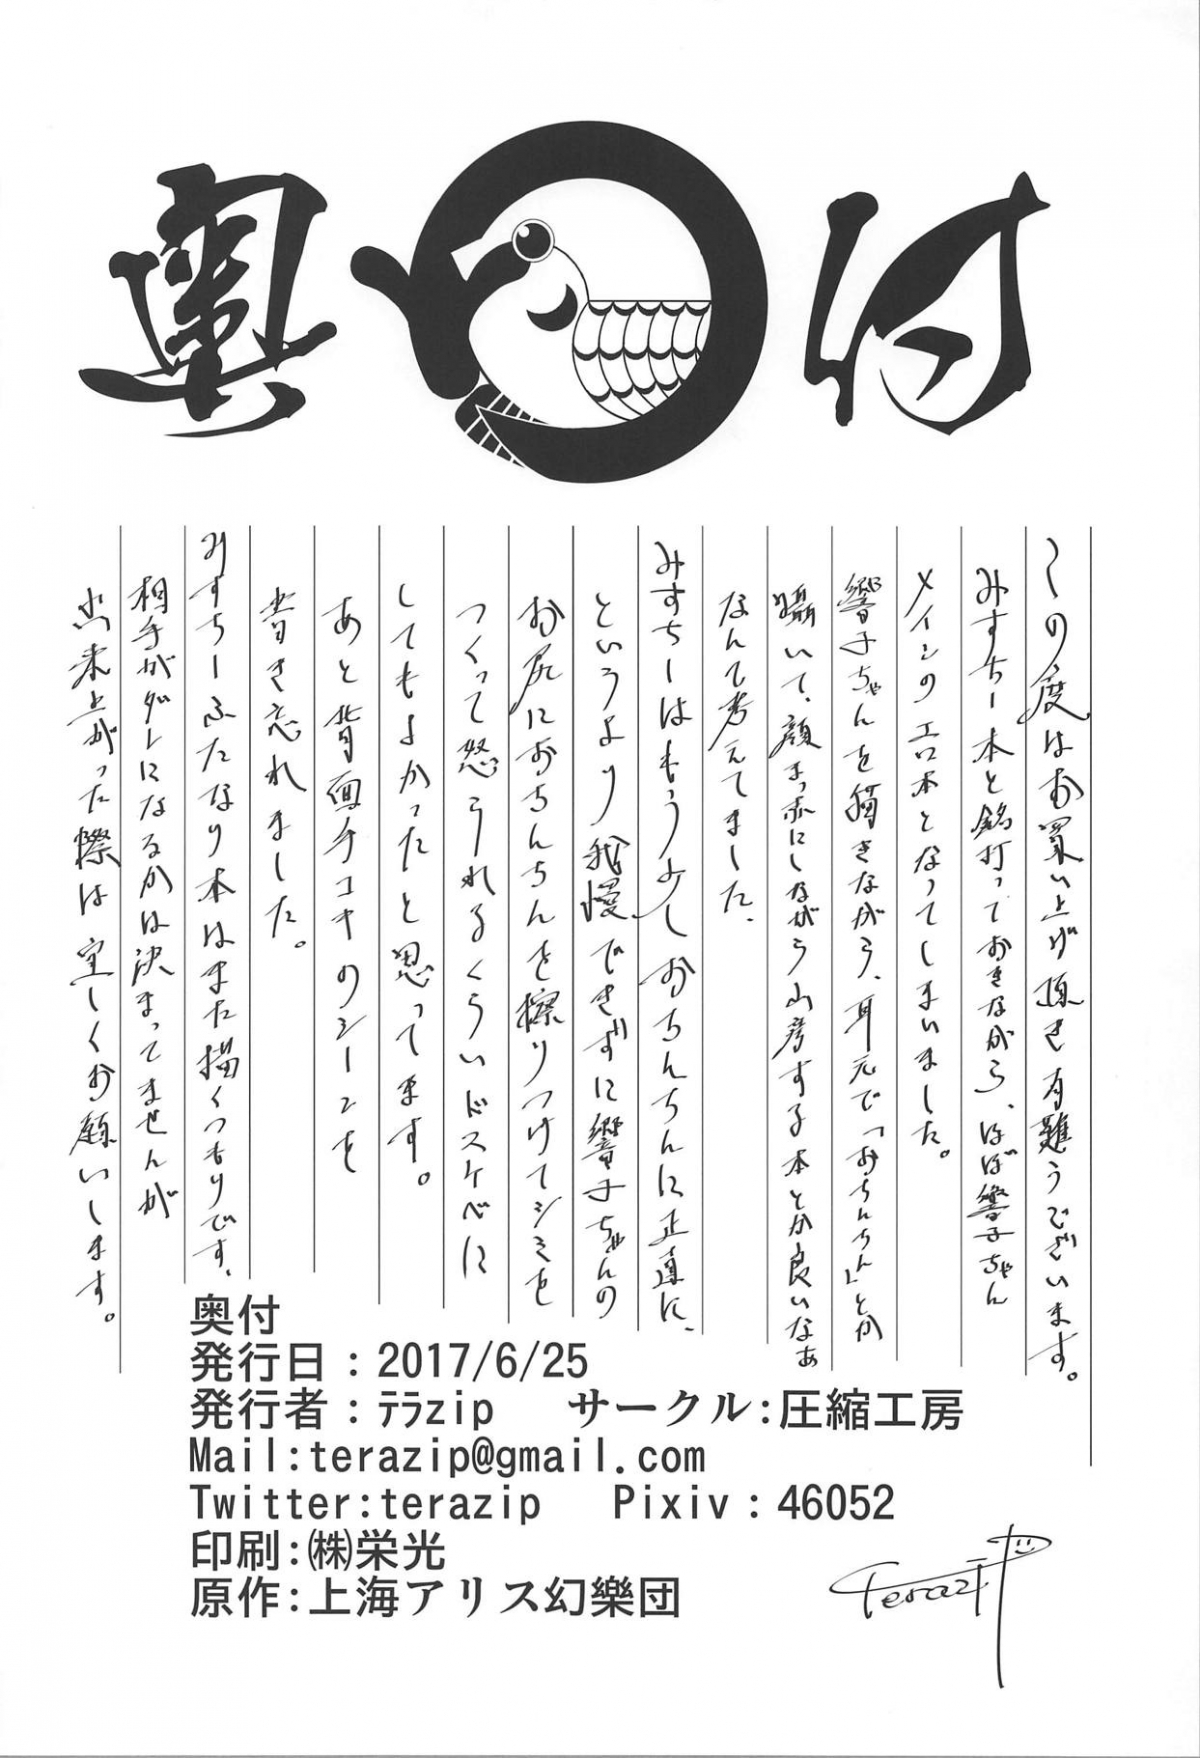 奥付
この度はお買い上げ頂き有難うございます。
みすちー本と銘打っておきながら、ほぼ響子ちゃん
メインのエロ本となってしまいました。
響子ちゃんを描きながら、耳元で「おちんちん」とか
囁いて、顔まっ赤にしながら山彦する本とか良いなぁ
なんて考えてました、
みすちーはもう少しおちんちんに正直に、
というより我慢できずに響子ちゃんの
お尻におちんちんを擦りつけてシミを
つくって怒られるくらいドスケベに
してもよかったと思ってます。
あと背面手コキのシーンを
書き忘れました。
みすちーふたなり本はまた描くつもりです、
相手がダレになるかは決まってませんが
出来上がった際は宜しくお願いします。
奥付
発行日：2017/6/25
発行者：ﾃﾗzip　サークル:圧縮工房
Mail:terazip@gmail.com
Twitter:terazip　Pixiv：46052
印刷:㈱栄光
原作:上海アリス幻樂団
Terazip